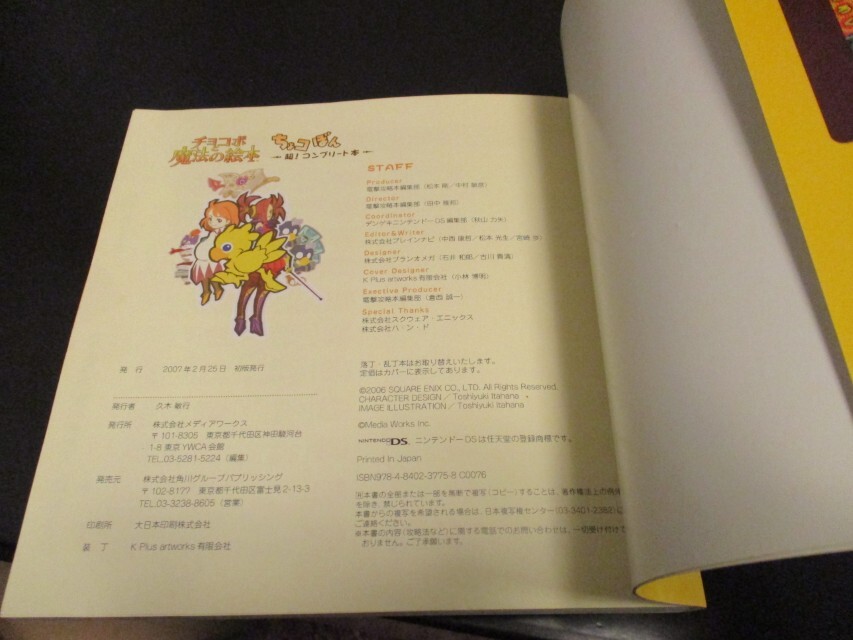 チョコボと
魔法の絵本
ちょコぼん
－超！コンプリート本－
発 行 2007年2月25日 初版発行
発行者 久木 敏行
発行所 株式会社メディアワークス
〒101-8305 東京都千代田区神田駿河台
1-8 東京YWCA会館
TEL.03-5281-5224（編集）
発売元 株式会社角川グループパブリッシング
〒102-8177 東京都千代田区富士見2-13-3
TEL.03-3238-8605（営業）
印刷所 大日本印刷株式会社
装 丁 K Plus artworks有限会社
STAFF
Producer
電撃攻略本編集部（松本 隆／中村
Director
電撃攻略本編集部（田中
Coordinator
デンゲキニンテンドーDS編集部（秋山
Editor&Writer
株式会社ブレインナビ（中西 ／松本 光生／宮崎
Designer
株式会社プランオメガ（石井 ／古川
Cover Designer
K Plus artworks有限会社（小林 博明）
Exective Producer
電撃攻略本編集部（倉西 誠一）
Special Thanks
株式会社スクウェア・エニックス
株式会社ハ・ン・ド
落丁・乱丁本はお取り替えいたします。
定価はカバーに表示してあります。
©2006 SQUARE ENIX CO., LTD. All Rights Reserved.
CHARACTER DESIGN / Toshiyuki Itahana
IMAGE ILLUSTRATION / Toshiyuki Itahana
©Media Works Inc.
NINTENDO DS、ニンテンドーDSは任天堂の登録商標です。
Printed in Japan
ISBN978-4-8402-3775-8 C0076
※本書の全部または一部を無断で複写（コピー）することは、著作権法上の例外
を除き、禁じられています。
本書からの複写を希望される場合は、日本複写権センター（03-3401-2382）に
ご連絡ください。
※本書の内容（攻略法など）に関する電話でのお問い合わせは、一切受け付けて
おりません。ご了承願います。